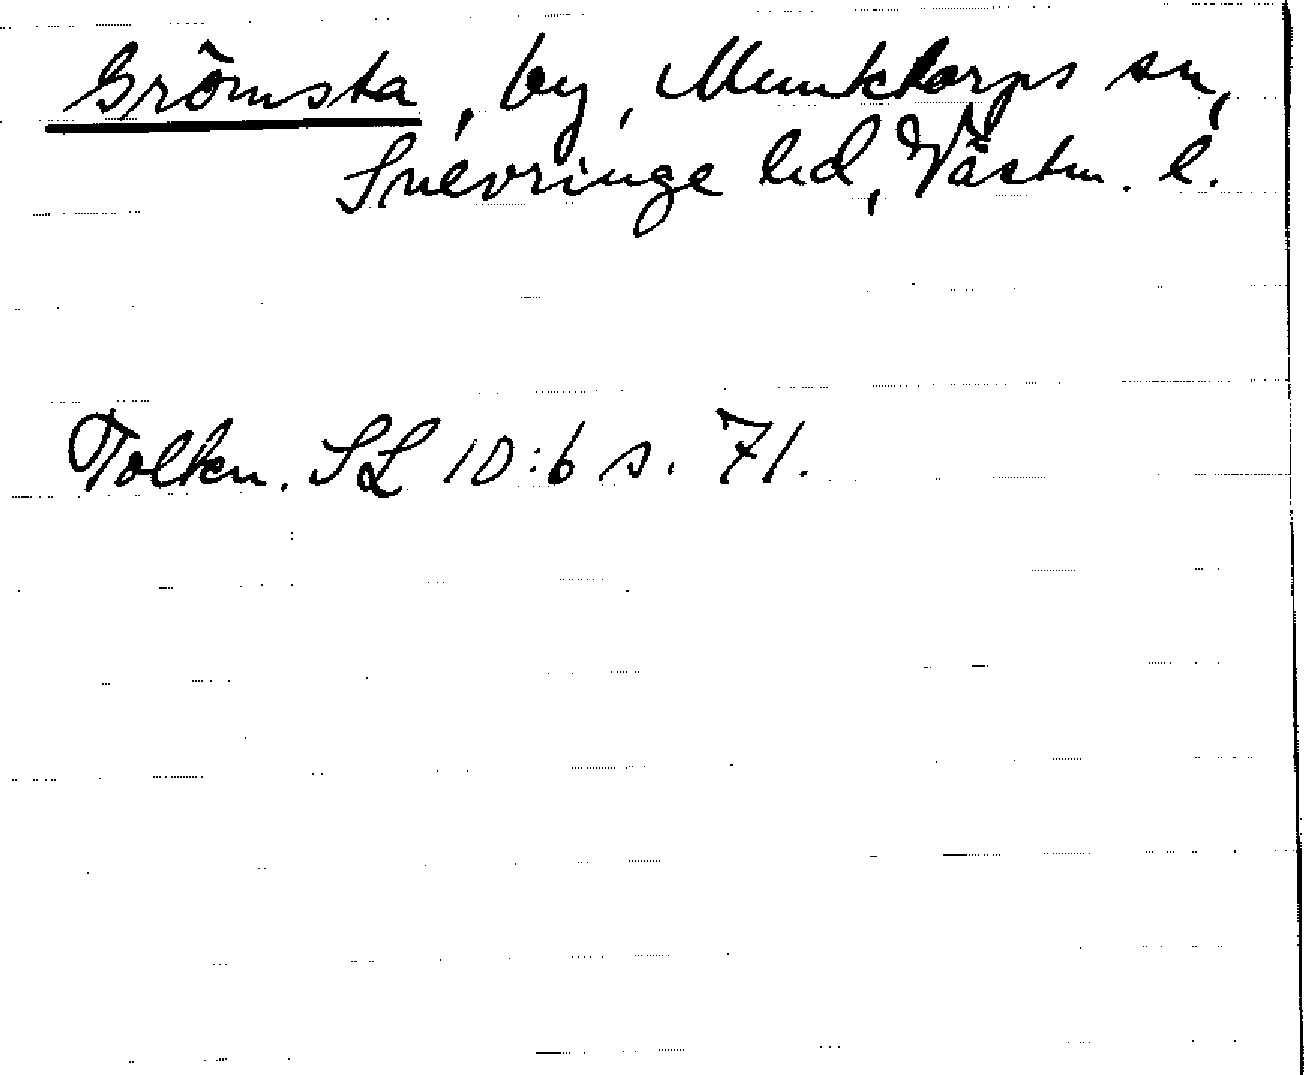 Grömsta, by, Munktorps sn,
Snevringe hd, Västm. l.
Tolkn. SL 10:6 s. 71.